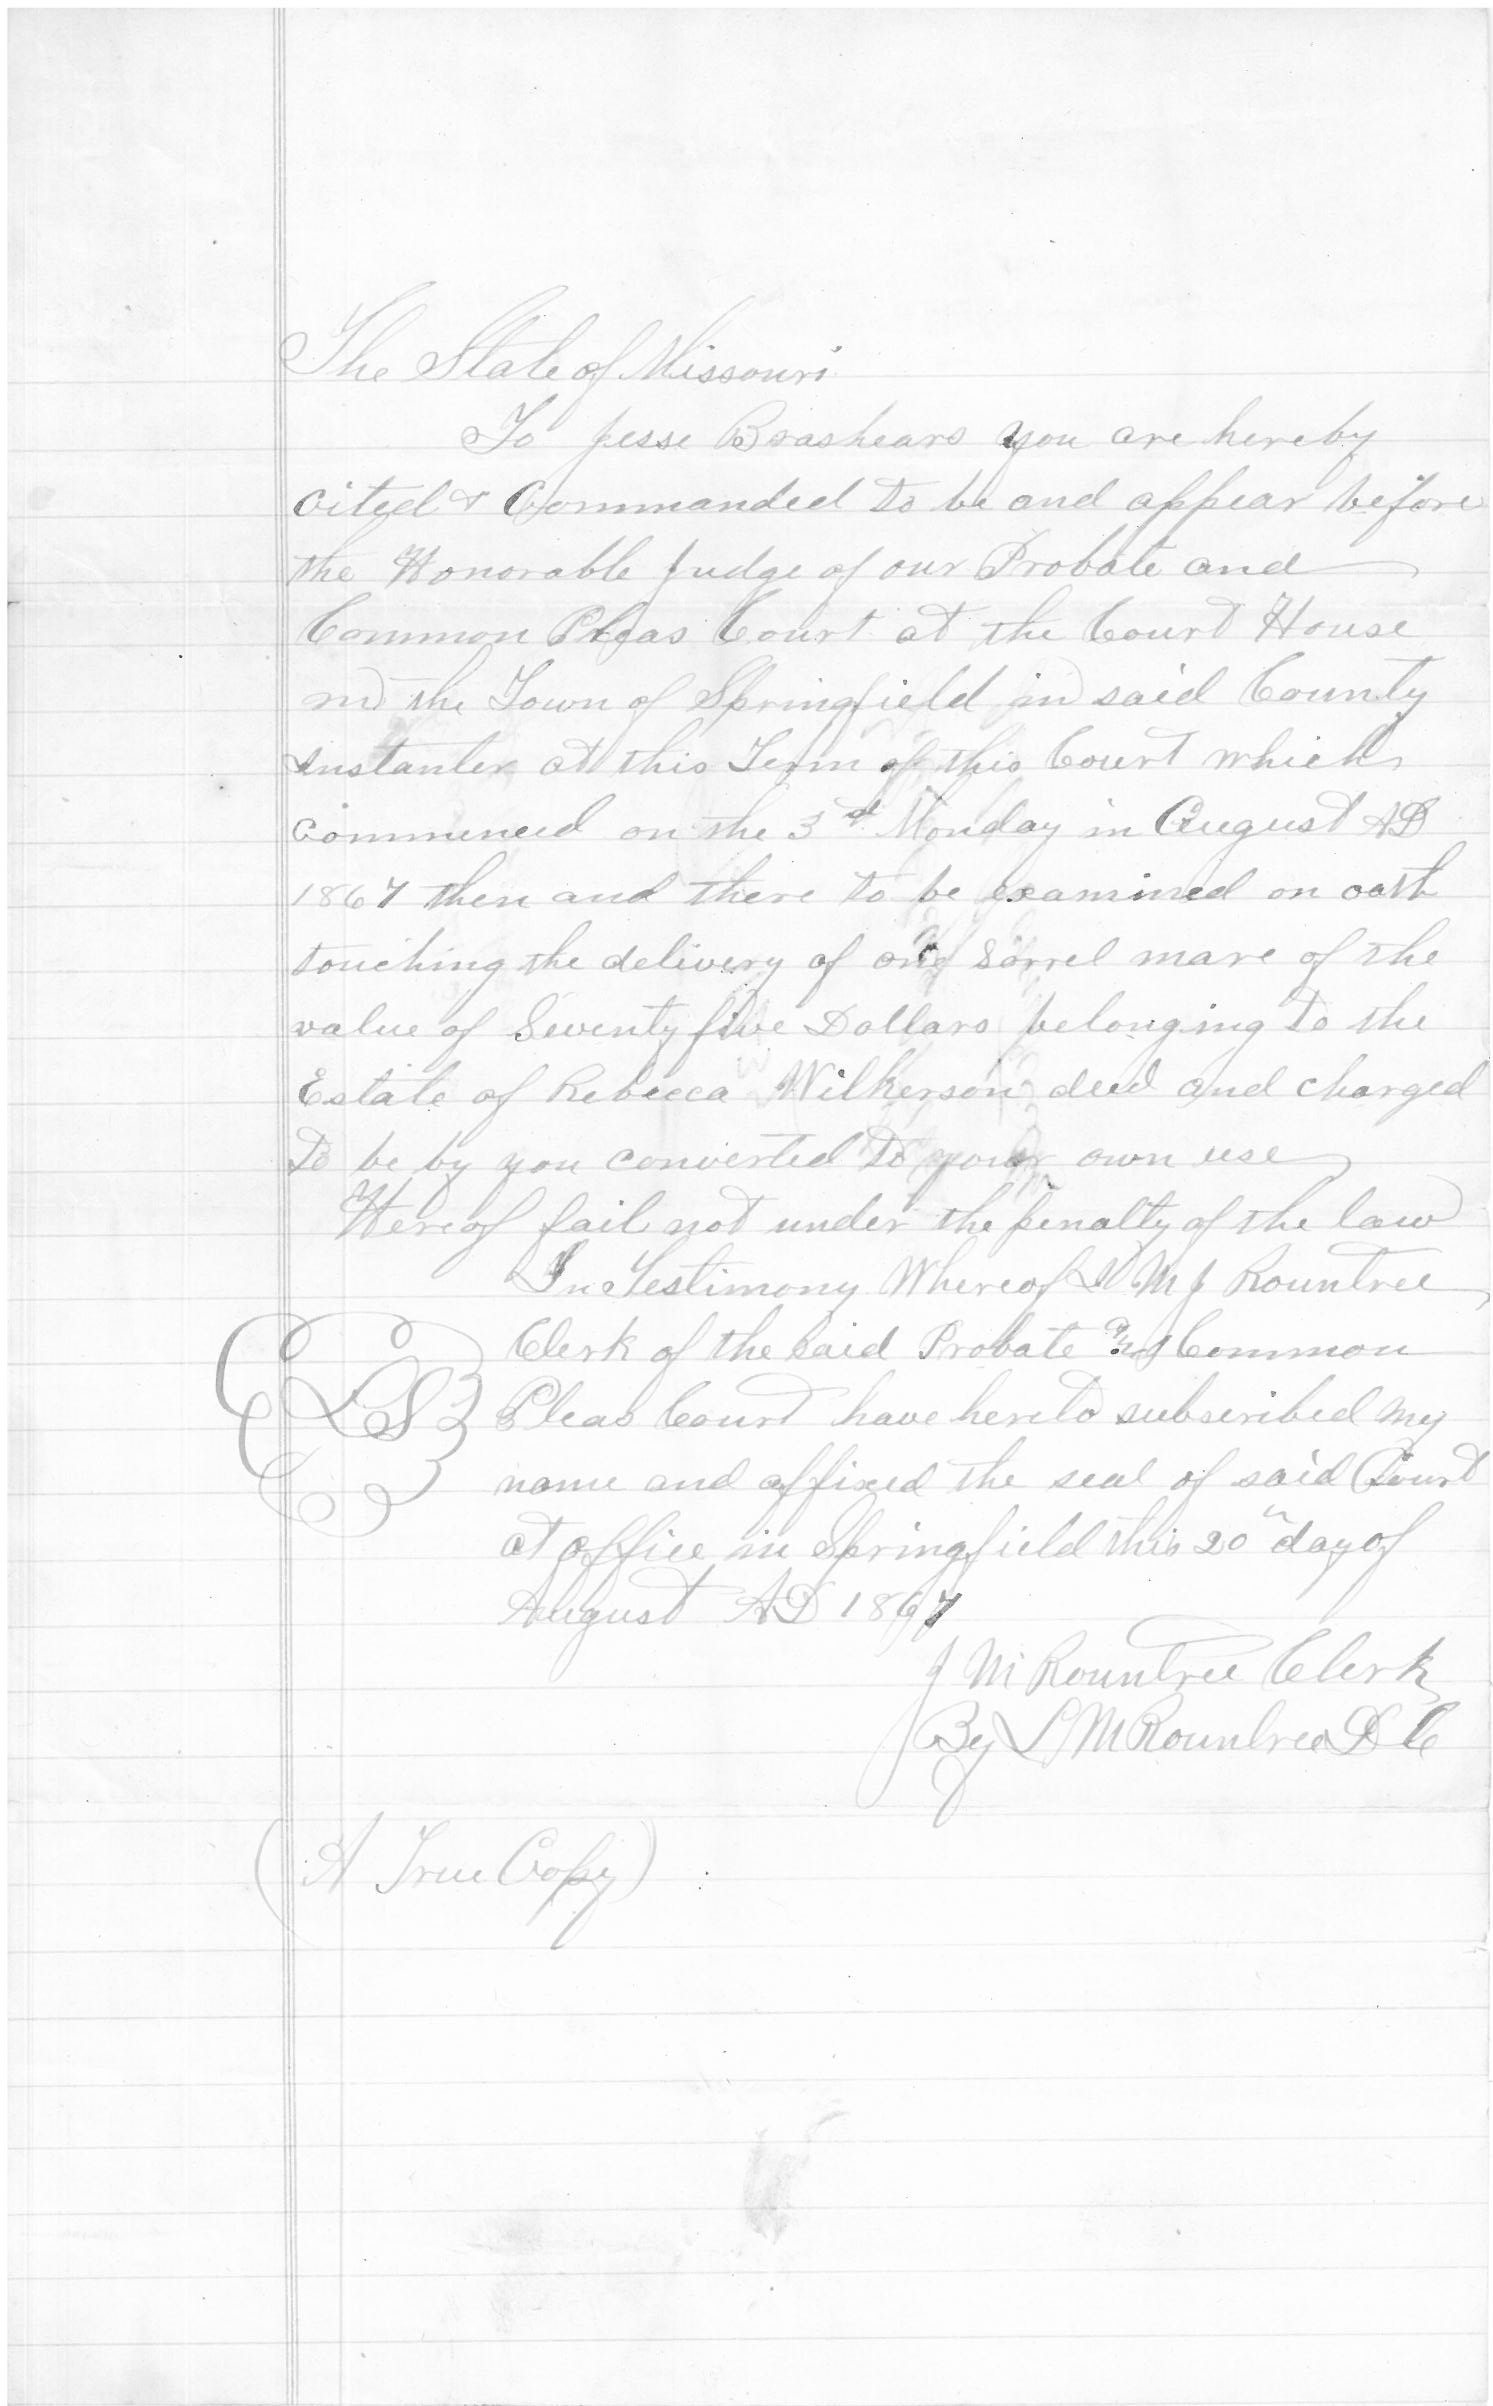 The State of Missouri
To Jesse Brashears you are hereby
cited & Commanded to be and appear before
the Honorable Judge of our Probate and
Common Pleas Court at the Court House
in the Town of Springfield in said County
Instanter at this Term of this Court which
commenced on the 3d Monday in August AD
1867 then and there to be examined on oath
touching the delivery of one Sorrel mare of the
value of Seventy five Dollars belonging to the
Estate of Rebecca Wilkerson decd and charged
to be by you converted to your own use
Hereof fail not under the penalty of the law
In Testimony Whereof I M J Rountree
Clerk of the said Probate and Common
LS
Pleas Court have hereto subscribed my
name and affixed the seal of said Court
at office in Springfield this 20th day of
August AD 1867
J M Rountree Clerk
By L M Rountree D C
(A True Copy)